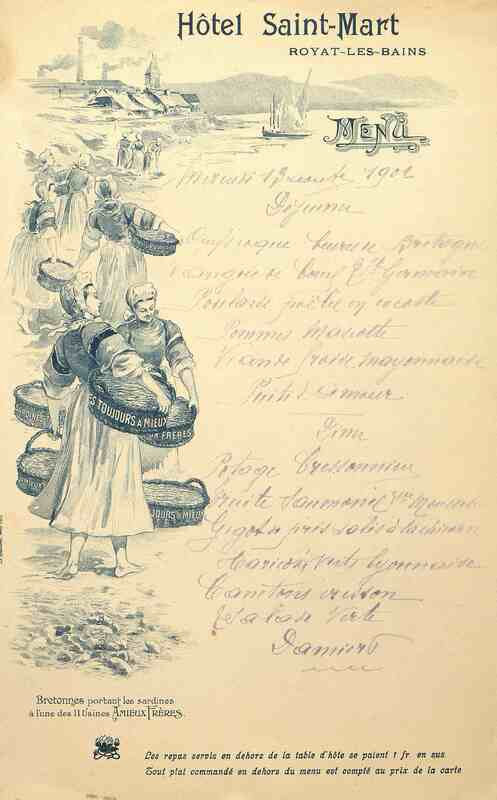 Hôtel Saint-Mart
ROYAT-LES-BAINS
MENU
Mercredi 13 août 1902
Déjeuner
beurre Bretagne
Langue de bœuf St Germaine
Poularde poêlée en cocotte
Pommes Mascotte
Viande froide mayonnaise
Puits d'amour
Diner
Potage Cressonnière
Truite Saumonée
Gigot de prés salés à la
Haricots verts lyonnaise
Canetons cresson
Salade Verte
Damiers
ES TOUJOURS A MIEUX
UX FRÈRES
JOURS A MIEUX
Bretonnes portant les sardines
à l'une des 11 Usines AMIEUX FRÈRES.
Les repas servis en dehors de la table d'hôte se paient 1 fr. en sus
Tout plat commandé en dehors du menu est compté au prix de la carte